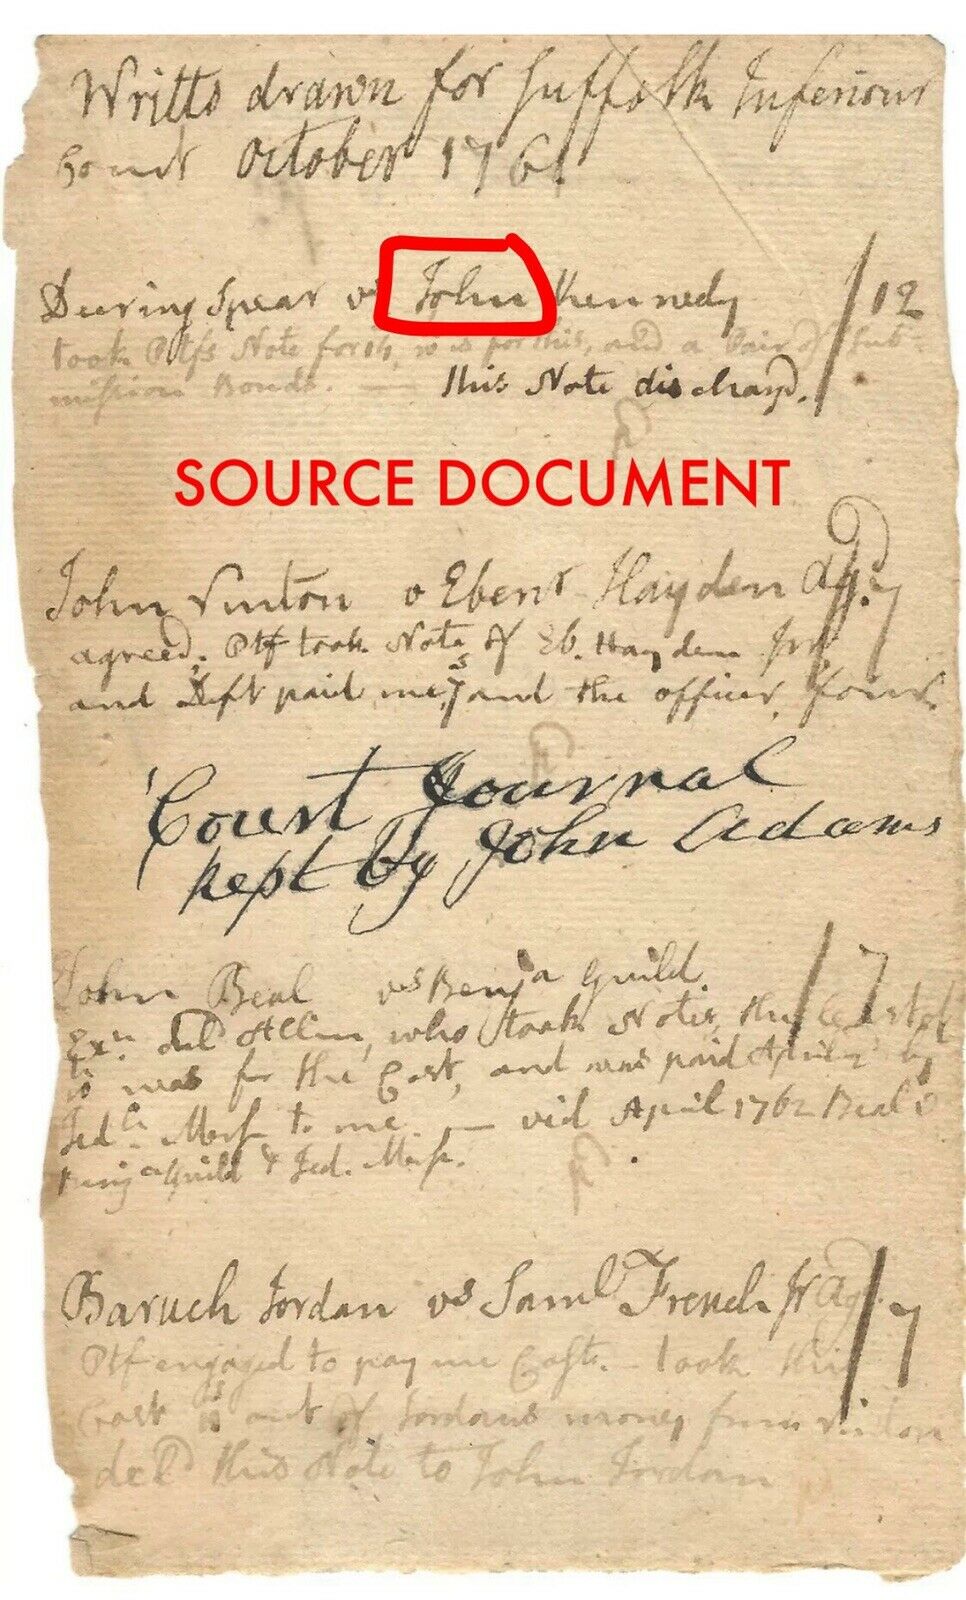 Writts drawn for Suffolk Inferiour
Court October 1761
Deering Spear vs John Kennedy /12
took Ptfs Note for this, and a Pair of Sub-
mission Bonds. — this Note dischargd.
SOURCE DOCUMENT
John Vinton v Ebenr Hayden Agd. 7
agreed. Ptf took Note of Eb. Hayden Jnr.
and Deft paid me, 7s and the officer, four.
Court Journal
kept by John Adams
John Beal vs Benja Guild. /7
Exn. deld Allin, who took Notes, the
was for the Cost, and was paid by
Jedh. Mors to me — vid April 1762 Beal v
Benja Guild & Jed. Mors.
Baruch Jordan vs Saml French Jr Agd. /7
Ptf engaged to pay me Costs. — took this
Cost out of Jordans money from Vinton
deld this Note to John Jordan